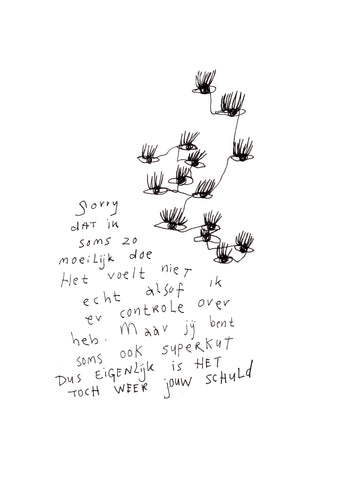 Sorry
DAT ik
soms zo
moeilijk doe
Het voelt nieT
echt alsof ik
er controle over
heb. Maar jij bent
soms ook superkuT
Dus EiGENLijk is HET
TOCH WEER jouw SCHULd